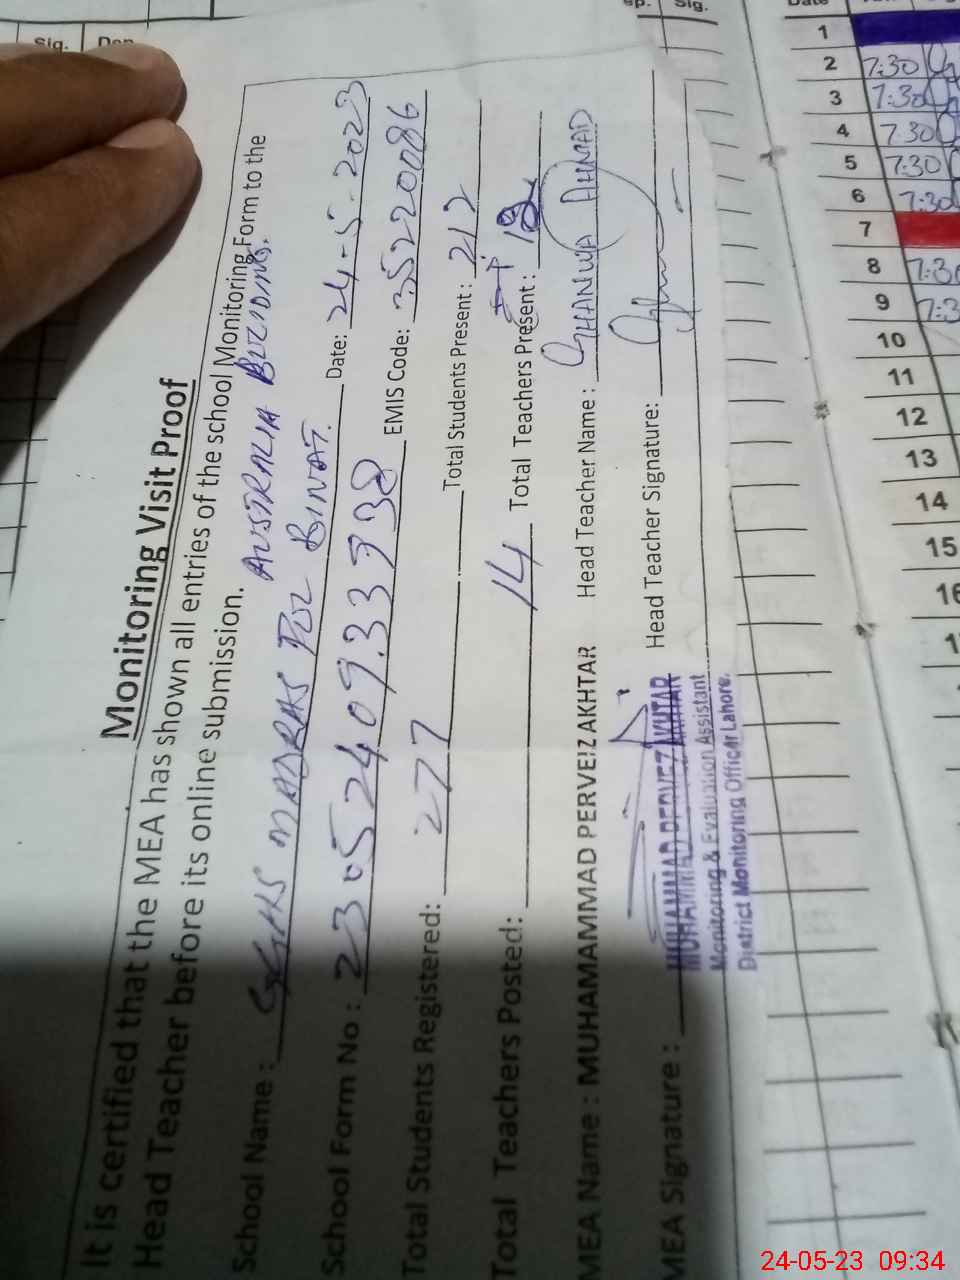 Monitoring Visit Proof
It is certified that the MEA has shown all entries of the school Monitoring Form to the
Head Teacher before its online submission.
AUSTRALIA BUILDING.
School Name : GGHS MADRAS TUL BINAT. Date: 24-5-2023
School Form No : 2305240933938 EMIS Code: 35220086
Total Students Registered: 277 Total Students Present : 212
Total Teachers Posted: 14 Total Teachers Present :
MEA Name : MUHAMAMMAD PERVEIZ AKHTAR Head Teacher Name : GHANWA AHMAD
MEA Signature : Head Teacher Signature:
MUHAMMAD PERVEZ AKHTAR
Monitoring & Evaluation Assistant
District Monitoring Officer Lahore.
Sig.
Sig.
Date
1
2 7:30
3 7:30
4 7:30
5 7:30
6 7:30
7
8 7:30
9 7:3
10
11
12
13
14
15
16
24-05-23 09:34